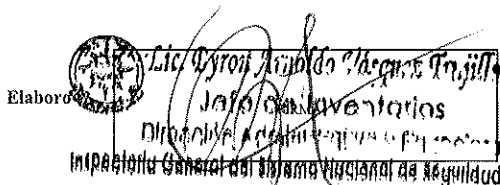 Lic. Byron Arnoldo Vásquez Trujillo
Elaboró
Jefe de Inventarios
Dirección Administrativa y Financiera
Inspectoría General del Sistema Nacional de Seguridad